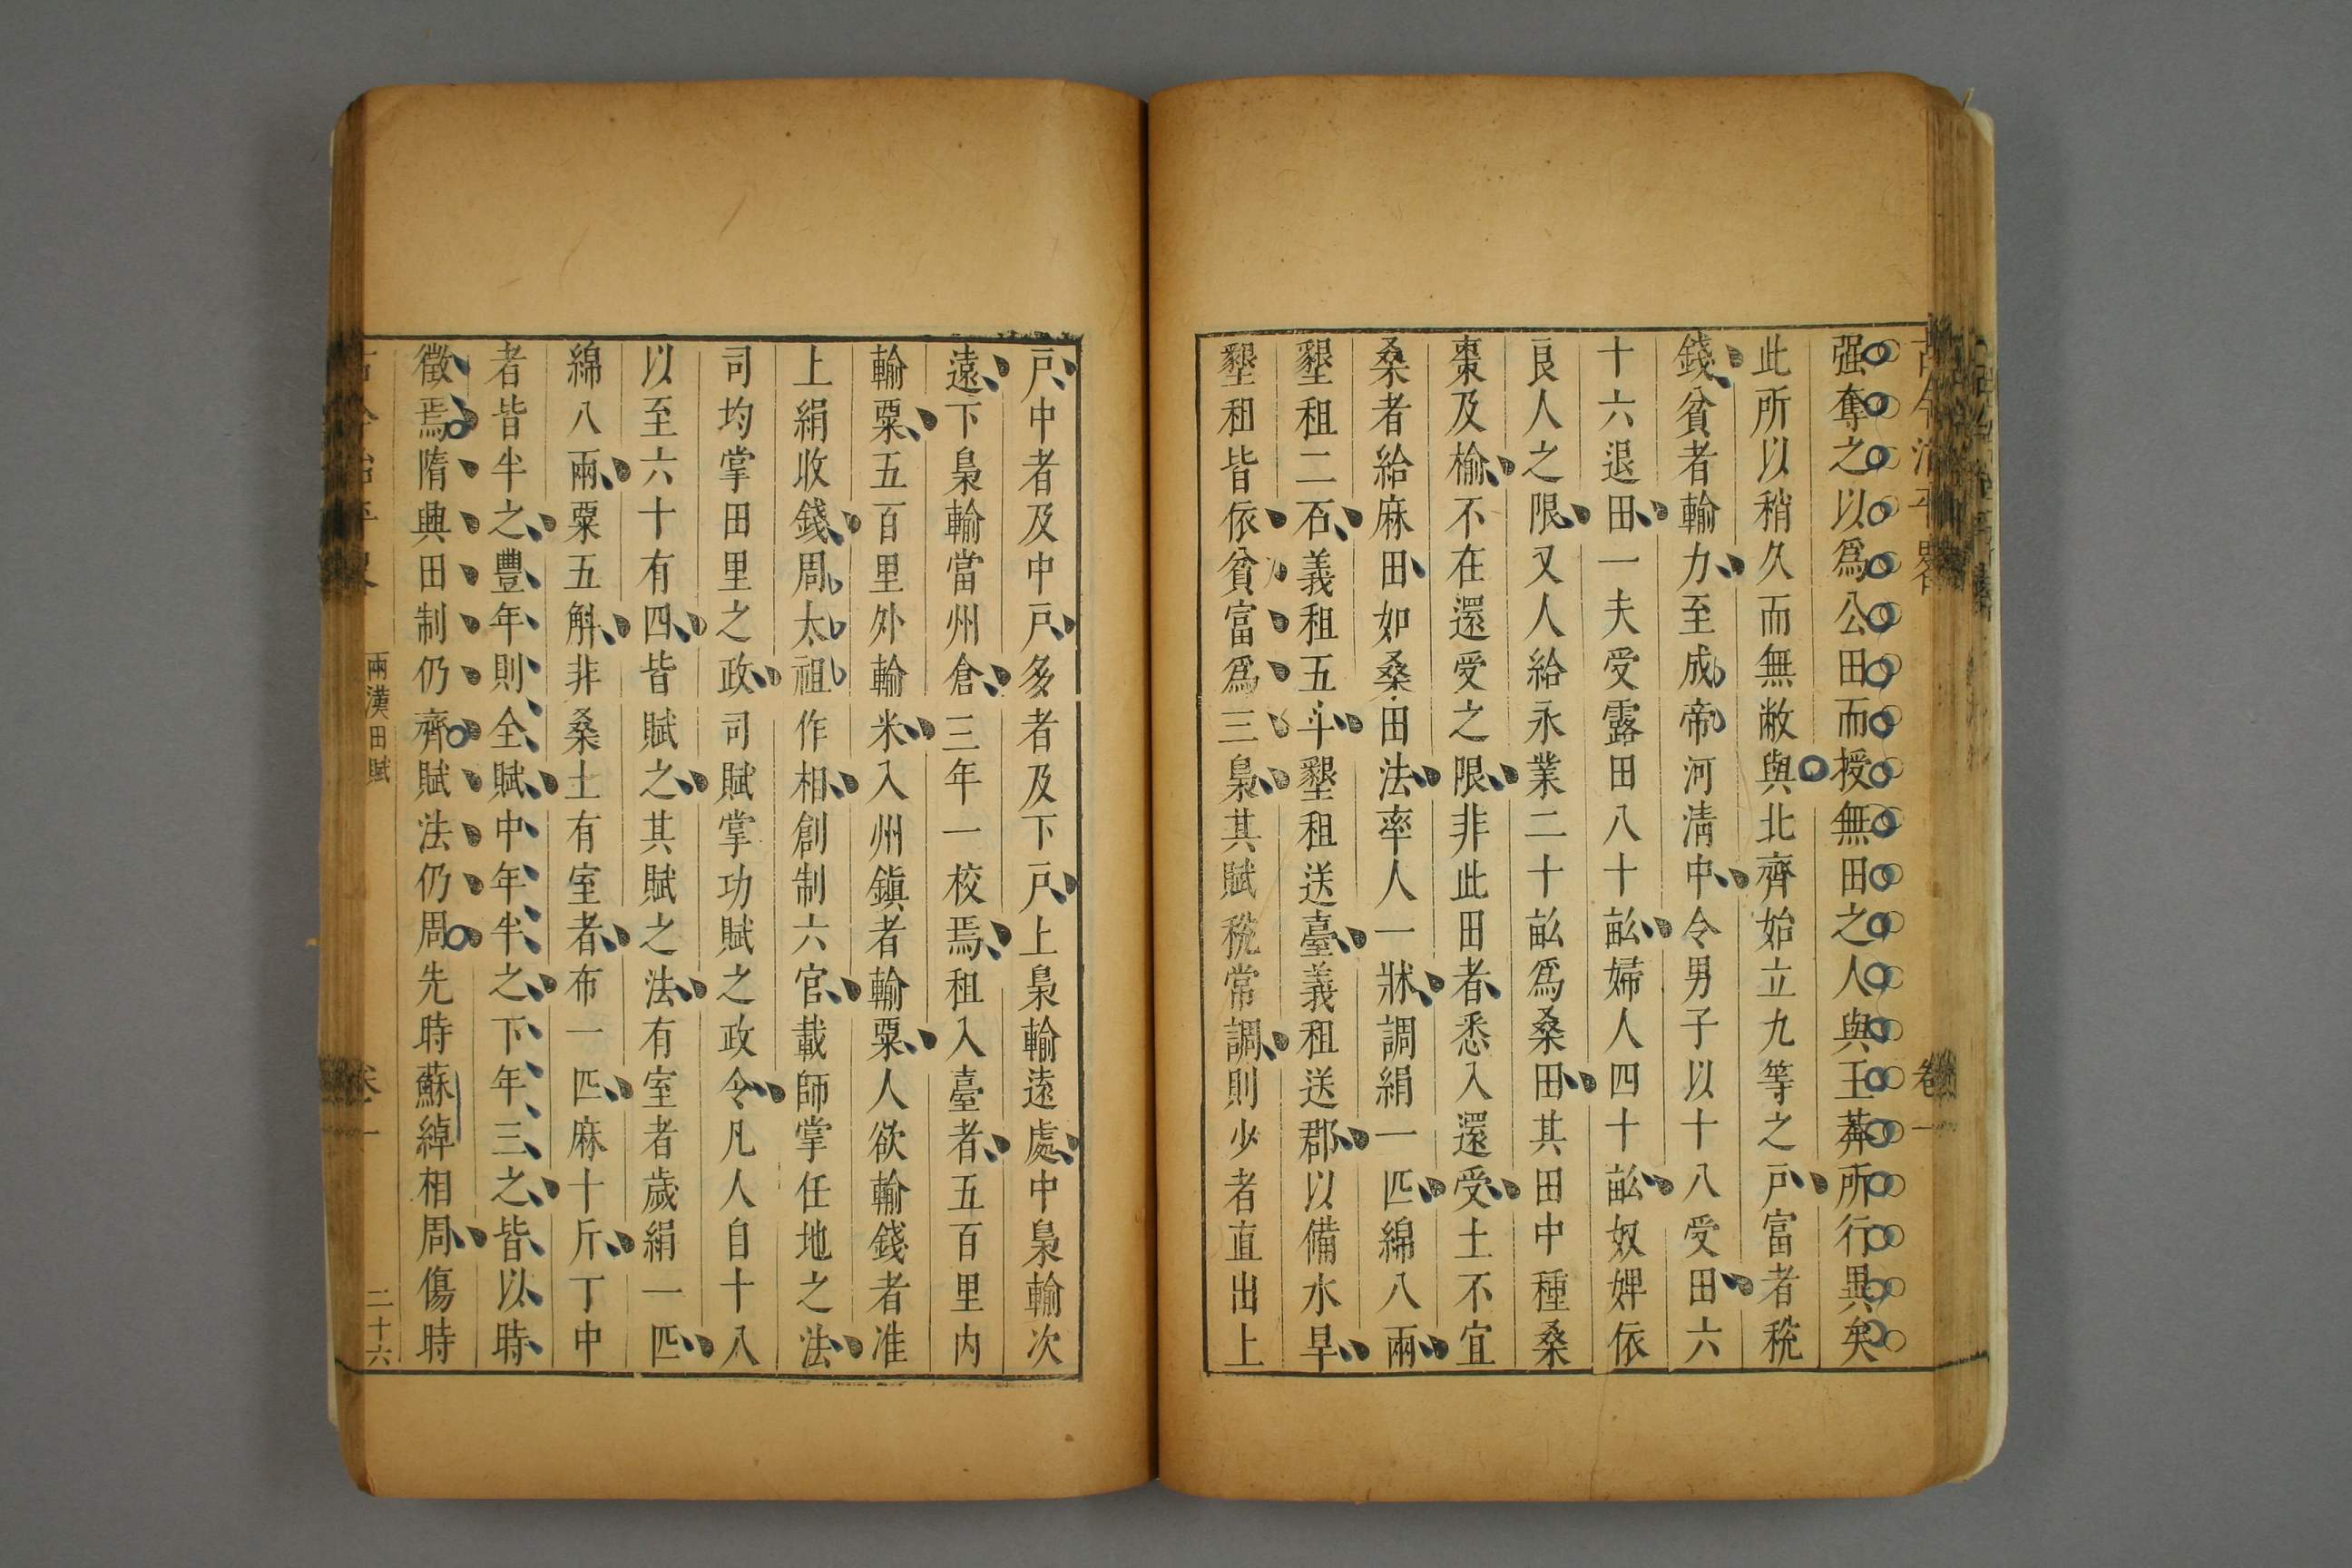 强奪之以爲公田而授無田之人與王莽所行異矣
此所以稍久而無敝與北齊始立九等之戸富者稅
錢貧者輸力至成帝河清中令男子以十八受田六
十六退田一夫受露田八十畝婦人四十畝奴婢依
良人之限又人給永業二十畝爲桑田其田中種桑
棗及榆不在還受之限非此田者悉入還受土不宜
桑者給麻田如桑田法率人一牀調絹一匹綿八兩
墾租二石義租五斗墾租送臺義租送郡以備水旱
墾租皆依貧富爲三梟其賦稅常調則少者直出上
戸中者及中戸多者及下戸上梟輸遠處中梟輸次
遠下梟輸當州倉三年一校焉租入臺者五百里内
輸粟五百里外輸米入州鎭者輸粟人欲輸錢者准
上絹收錢周太祖作相創制六官載師掌任地之法
司均掌田里之政司賦掌功賦之政令凡人自十八
以至六十有四皆賦之其賦之法有室者歲絹一匹
綿八兩粟五斛非桑土有室者布一匹麻十斤丁中
者皆半之豐年則全賦中年半之下年三之皆以時
徵焉隋興田制仍齊賦法仍周先時蘇綽相周傷時
兩漢田賦
二十六